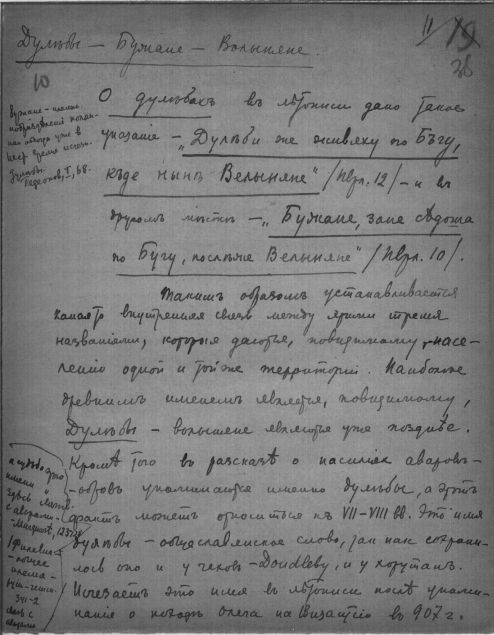 11 19
38
Дулѣбы – Бужане – Волыняне.
10
О дулѣбахъ въ лѣтописи дано такое
указание – „Дулѣби же живяху по Бъгу,
къде нынѣ Велыняне" /Ипл. 12/ – и въ
другомъ мѣстѣ – „Бужане, зане сѣдоша
по Бугу, послѣже Велыняне" /Ипл. 10/.
Такимъ образомъ устанавливается
какая то внутренняя связь между этими тремя
названиями, которыя даются, повидимому, насе-
лению одной и той же территорiи. Наиболѣе
древнимъ именемъ является, повидимому,
Дулѣбы – волыняне являются уже позднѣе.
Кромѣ того въ разсказѣ о насилiяхъ аваровъ –
– обровъ упоминаются именно дулѣбы, а этотъ
фактъ можетъ относиться къ VII–VIII вв. Это имя
дулѣбы – общеславянское слово, так какъ сохрани-
лось оно и у чеховъ – Doudleby, и у хорутанъ.
Исчезаетъ это имя въ лѣтописи послѣ упомин-
ания о походѣ Олега на Византiю въ 907 г.
Бужане – имя
уже в
время
I, 68.
имени
здѣсь
с аварами
племя